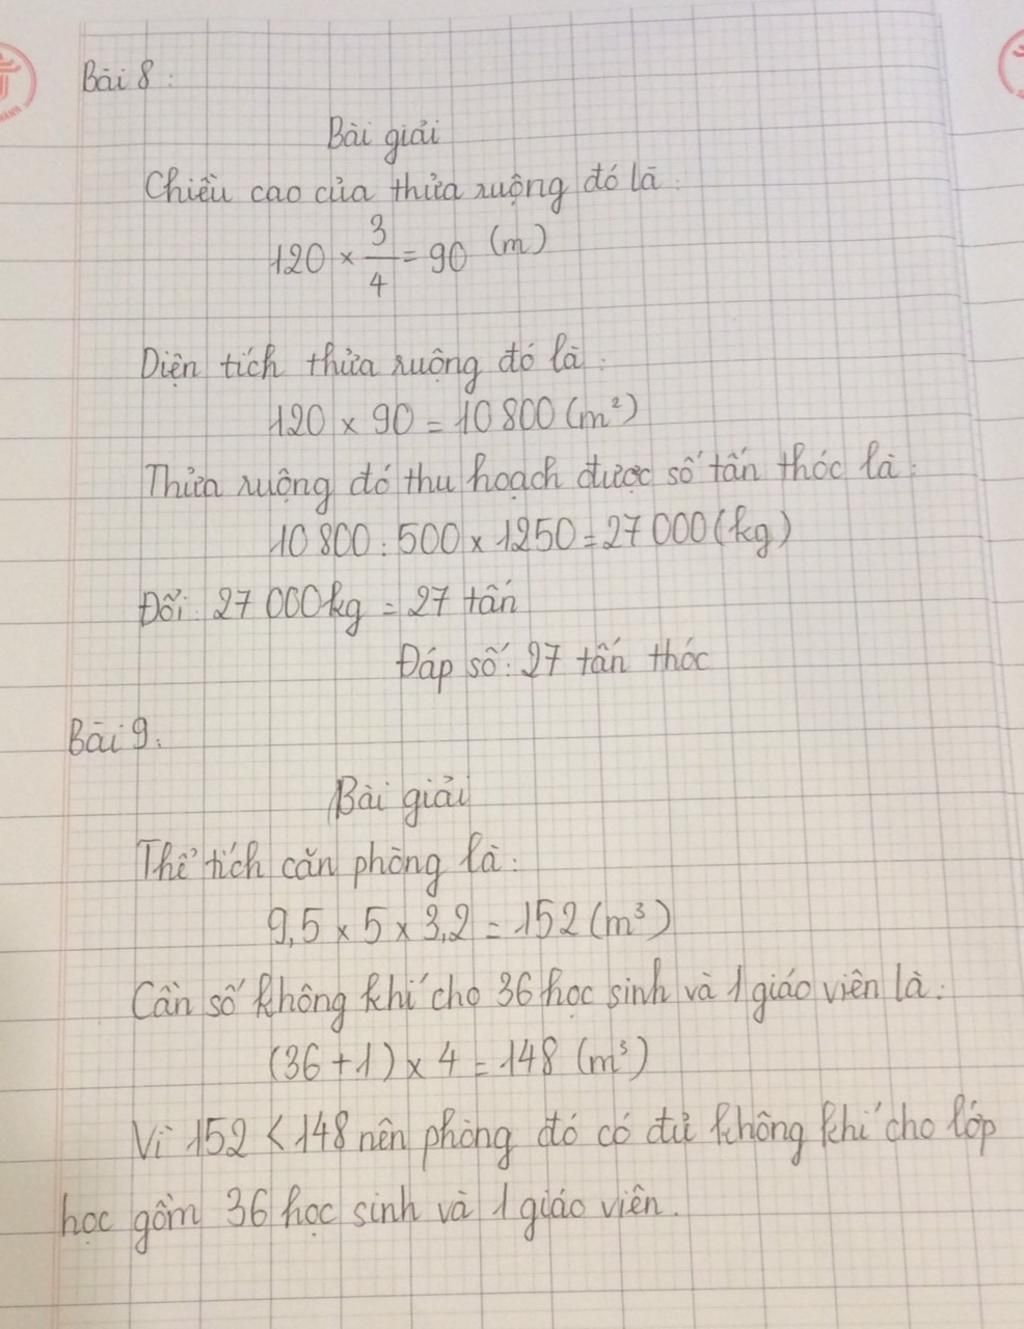 Bài 8:
Bài giải
Chiều cao của thửa ruộng đó là:
120 × 3/4 = 90 (m)
Diện tích thửa ruộng đó là:
120 × 90 = 10 800 (m²)
Thửa ruộng đó thu hoạch được số tấn thóc là:
10 800 : 500 × 1250 = 27 000 (kg)
Đổi: 27 000 kg = 27 tấn
Đáp số: 27 tấn thóc
Bài 9:
Bài giải
Thể tích căn phòng là:
9,5 × 5 × 3,2 = 152 (m³)
Cần số không khí cho 36 học sinh và 1 giáo viên là:
(36 + 1) × 4 = 148 (m³)
Vì 152 < 148 nên phòng đó có đủ không khí cho lớp
học gồm 36 học sinh và 1 giáo viên.